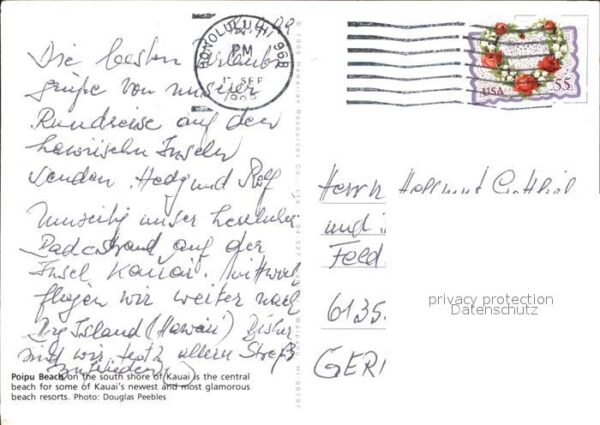 HONOLULU HI 968
PM
17 SEP
USA 55
Die besten Urlaubs
grüße von unserer
Rundreise auf den
hawaiischen Inseln
senden Hedy und Rolf
Umseitig unser herrlicher
Badestrand auf der
Insel Kauai. Mittwoch
fliegen wir weiter nach
Big Island (Hawaii) Bisher
sind wir trotz allem Streß
zufrieden
Herrn Hellmut
und
Feld
6135
GER
privacy protection
Datenschutz
Poipu Beach on the south shore of Kauai is the central
beach for some of Kauai's newest and most glamorous
beach resorts. Photo: Douglas Peebles